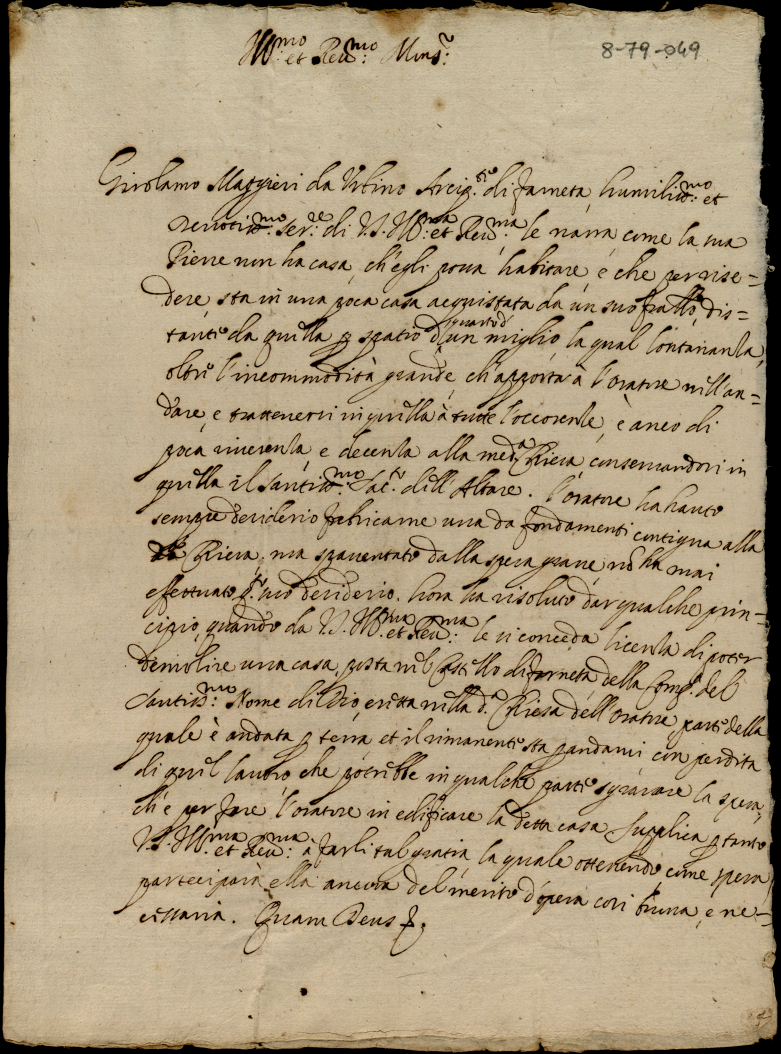 Ill.mo et Reu.mo Mons.r
8-79-049
Girolamo Maggieri da Urbino Arcip.te di farneta humiliss.mo et
deuotiss.mo ser.re di V.S. Ill.ma et Reu.ma le narra come la sua
Pieue non ha casa, ch'egli possa habitare, e che per rise=
dere, sta in una poca casa acquistata da un suo frallo, dis=
tante da quella p spatio d'un quarto d miglio, la qual lontananza,
oltre l'incommodità grande, ch'apporta à l'oratore nell'an=
dare, e trattenersi in quella à tutte l'occorenze, è anco di
poca riuerenza, e decenza alla med.a Chiesa conseruandosi in
quella il santiss.mo Sac.to dell'Altare. l'oratore ha hauto
sempre desiderio fabricarne una da fondamenti contigua alla
Chiesa, ma spauentato dalla spesa graue nõ ha mai
effettuato q.to suo desiderio. hora ha risoluto dar qualche prin=
cipio, quando da V.S. Ill.ma et Reu.ma le si conceda licenza di poter
demolire una casa posta nel Castello di farneta della Comp.a del
Santiss.mo Nome di Dio eretta nella d.a Chiesa dell'oratore, parte della
quale è andata p terra et il rimanente sta p andarui con perdita
di quel lauoro che potrebbe in qualche parte sgrauare la spesa,
ch'è per fare l'oratore in edificare la detta casa. Supplica p tanto
V.S. Ill.ma et Reu.ma à farli tal gratia la quale ottenendo come spera
parteciparà ella ancora del merito d'opera così buona, e ne=
cessaria. Quam Deus &.